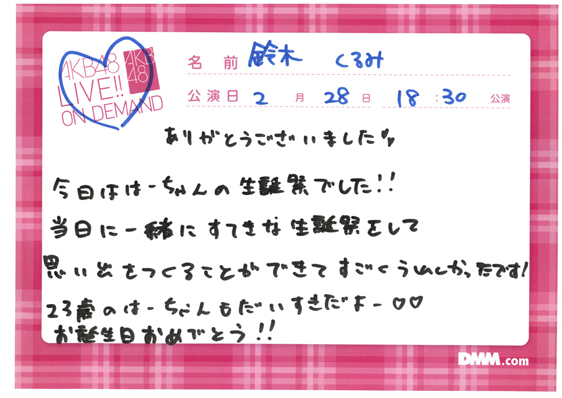 AKB48
LIVE!!
ON DEMAND
AKB
48
名前 鈴木 くるみ
公演日 2月28日 18:30 公演
ありがとうございました
今日ははーちゃんの生誕祭でした!!
当日に一緒にすてきな生誕祭をして
思い出をつくることができてすごくうれしかったです!
23歳のはーちゃんもだいすきだよー♡♡
お誕生日おめでとう!!
DMM.com